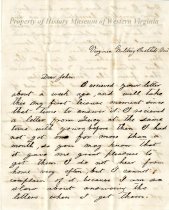 Property of History Museum of Western Virginia
Virginia Military Institute
Dear John
I received your letter
about a week ago and will take
this my first leisure moment since
that time to answer it. I received
a letter from at the same
time with yours before then I had
not got one for more than a
month, so you may know that
it gave me great pleasure to
get them I do not hear from
home very often but I cannot
complain of it because I am
slow about answering the
letters when I get them.